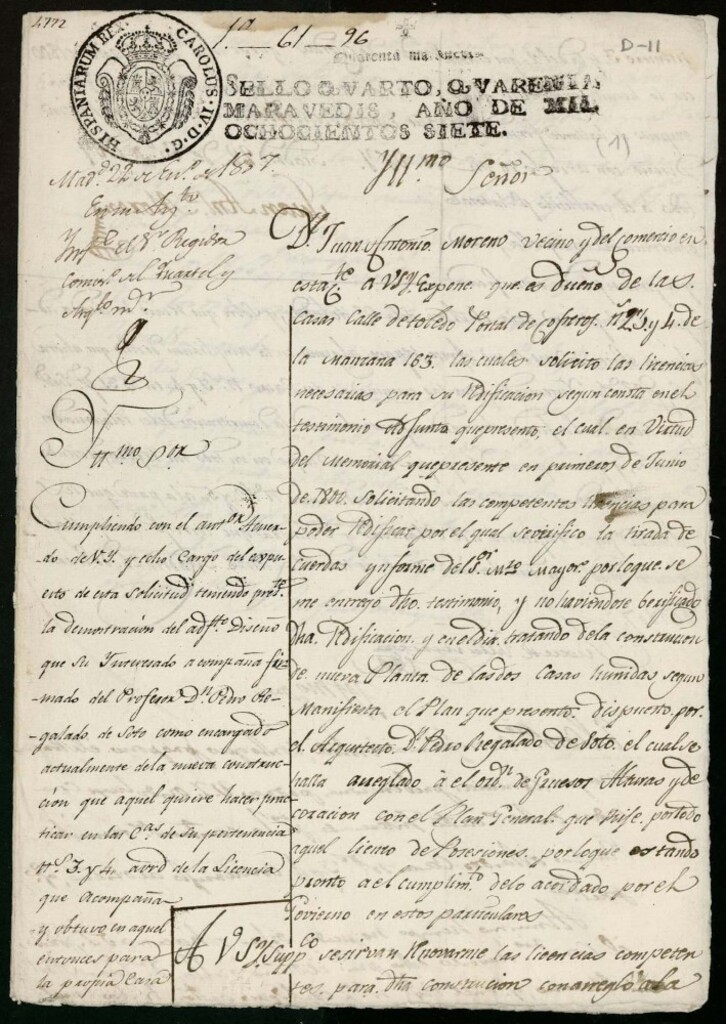 1ª—61—96
D-11
HISPANIARUM REX. CAROLUS. IV. D. G.
SELLO QVARTO, QVARENTA
MARAVEDIS, AÑO DE MIL
OCHOCIENTOS SIETE.
Yll.mo Señor
Dn. Juan Antonio Moreno Vecino y del comercio en
esta a V.Y. expone que es dueño de las
Casas Calle de toledo Portal de Cofreros nº 3 y 4 de
la Manzana 163. las cuales solicito las licencias
necesarias para su Redificacion segun consta en el
testimonio adjunto que presento, el cual en Virtud
del Memorial que presente en primeros de Junio
de 1800. Solicitando las competentes licencias para
poder Redificar por el qual se verifico la tirada de
Cuerdas y informe del Sor. Mtro Mayor, por lo que se
me entrego dho. testimonio, y no haviendose berificado
dha. Redificacion y en el dia tratando de la construccion
de nueva Planta de las dos Casas hunidas segun
Manifiesta el Plan que presento dispuesto por
el Arquitecto Dn. Pedro Regalado de Soto, el cual se
halla arreglado à el ordn. de Gruesos Alturas y de
coracion con el Plan General que Rije por todo
aquel liento de Posesiones. por lo que estando
pronto a el cumplimto. de lo acordado por el
Govierno en estos particulares
A V.S.Y. Suppco se sirvan Renovarme las licencias competen
tes para dha construcion con arreglo a la
Madd. 22 de de 1807.
En su Aytto
Ynfe. el Sr. Regidor
Comiso. del Quartel y
Arqto mr.
Yllmo Sor
Cumpliendo con el antor. Acuer-
do de V.Y. y echo Cargo del expu-
esto de esta solicitud teniendo prte.
la demostracion del adjto. Diseño
que su Ynteresado acompaña fir-
mado del Profesor Dn. Pedro Re-
galado de Soto como encargado
actualmente de la nueva construc-
cion que aquel quiere hacer prac-
ticar en las Cas de su pertenencia
nos. 3. y 4. de la Licencia
que acompaña
y obtuvo en aquel
entonces para
la propia Casa